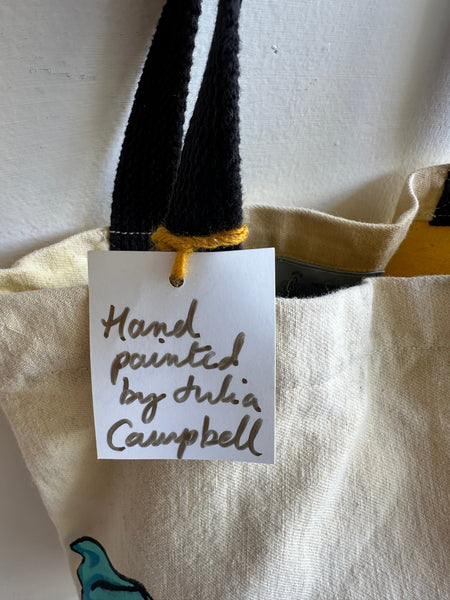 Hand
painted
by Julia
Campbell